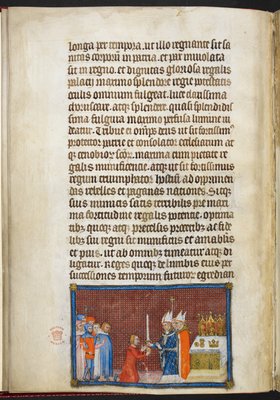 longa per tempora. ut illo regnante sit sa
nitas corporum in patria. et pax inuiolata
sit in regno. et dignitas gloriosa regalis
palacij maximo splendore regie potestatis
oculis omnium fulgeat. luce clarissima
choruscare. atqz splendere. quasi splendidis
sima fulgura maximo perfusa lumine ui
deatur. Tribue ei omps deus ut sit fortissim9
protector patrie et consolator ecclesiarum at
qz cenobior scor. maxima cum pietate re
galis munificencie. atqz ut sit fortissimus
regum triumphator hostium ad opprimen
das rebelles et paganas nationes. Sitqz
suis inimicis satis terribilis pre maxi
ma fortitudine regalis potencie. optima
tibz quoqz atqz precelsis proceribz ac fide
libz sui regni sit munificus et amabilis
et pius. ut ab omnibz timeatur atqz di
ligatur. Reges quoqz de lumbis eius per
successiones temporum futuror egredian